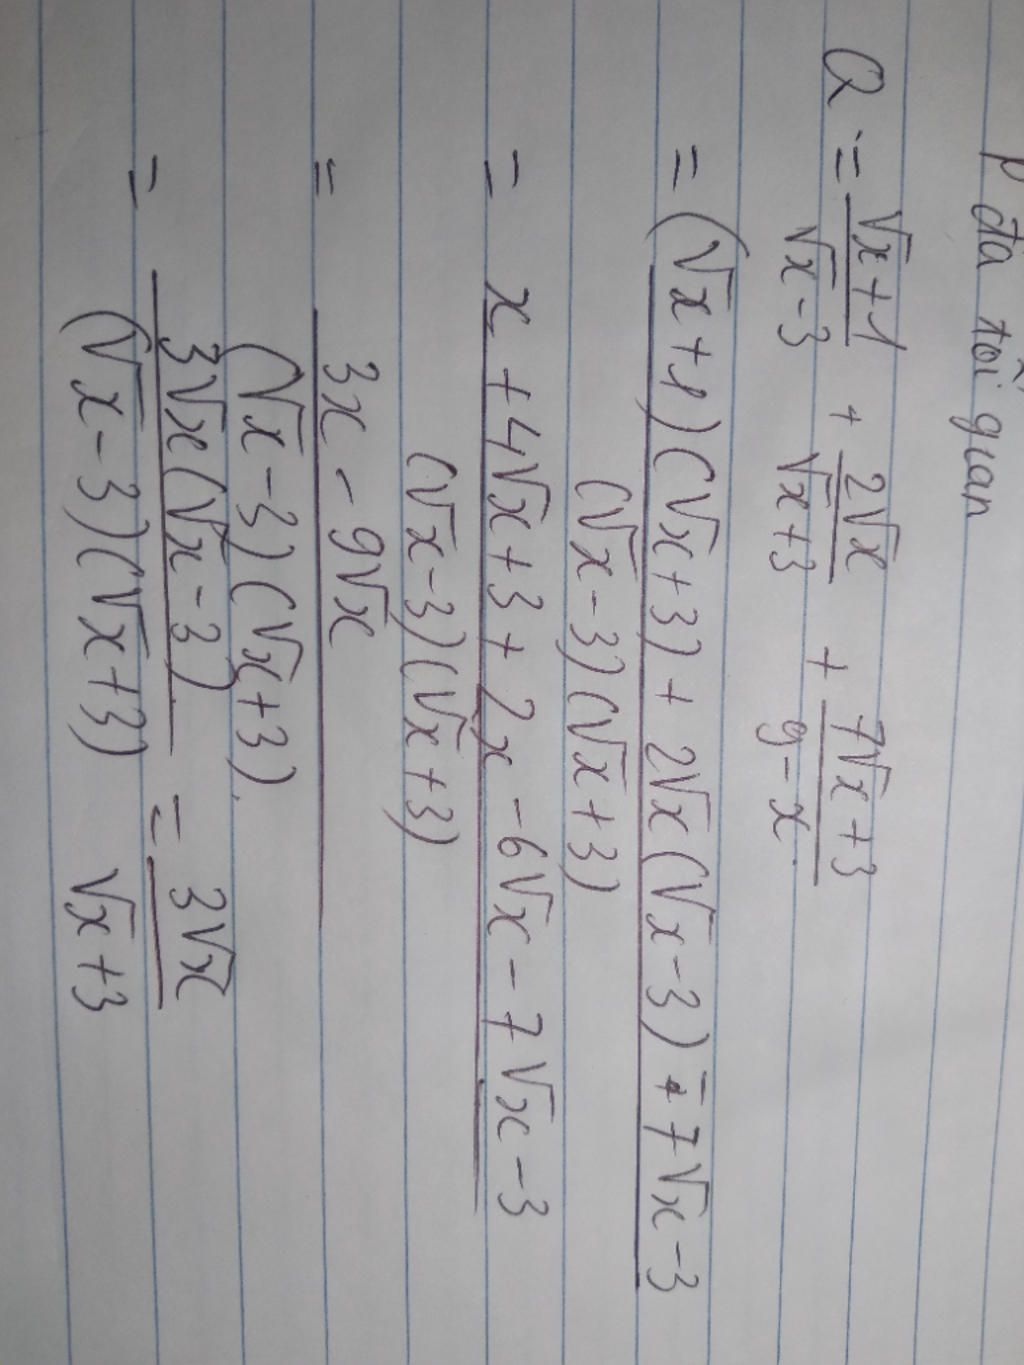 P đã tối giản
Q = (√x+1)/(√x-3) + 2√x/(√x+3) + (7√x+3)/(9-x)
= ((√x+1)(√x+3) + 2√x(√x-3) - 7√x-3)/((√x-3)(√x+3))
= (x+4√x+3+2x-6√x-7√x-3)/((√x-3)(√x+3))
= (3x-9√x)/((√x-3)(√x+3))
= (3√x(√x-3))/((√x-3)(√x+3)) = 3√x/(√x+3)